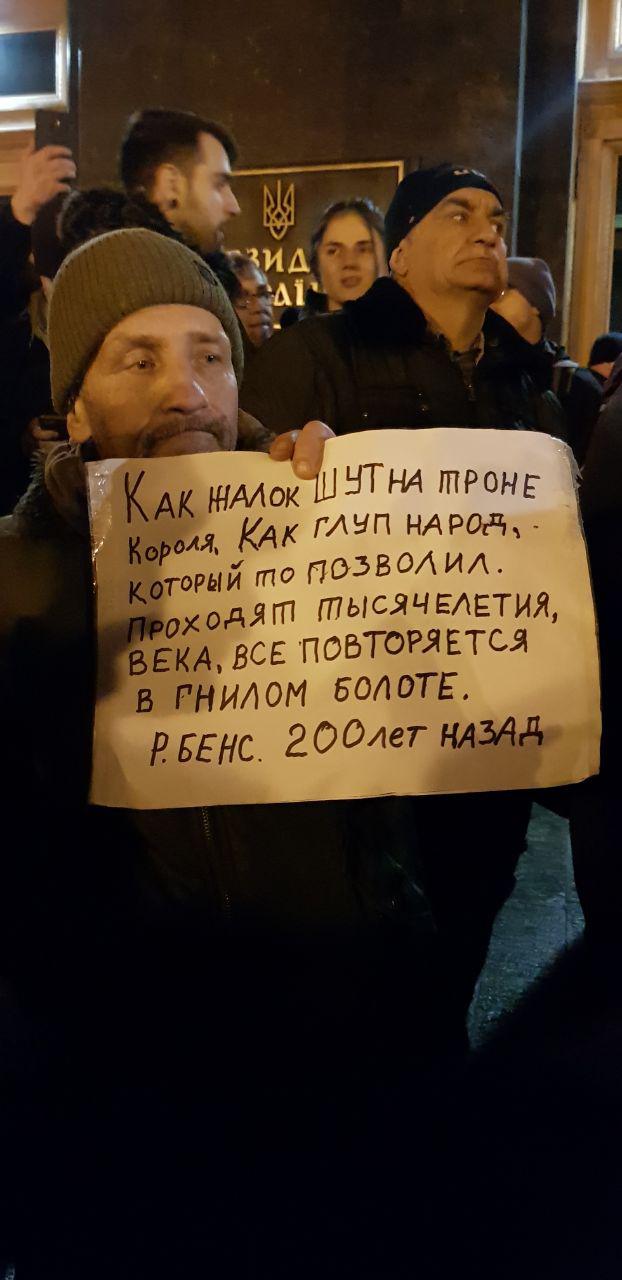 КАК ЖАЛОК ШУТ НА ТРОНЕ
КОРОЛЯ. КАК ГЛУП НАРОД,
КОТОРЫЙ ТО ПОЗВОЛИЛ.
ПРОХОДЯТ ТЫСЯЧЕЛЕТИЯ,
ВЕКА, ВСЕ ПОВТОРЯЕТСЯ
В ГНИЛОМ БОЛОТЕ.
Р. БЕНС. 200 лет НАЗАД